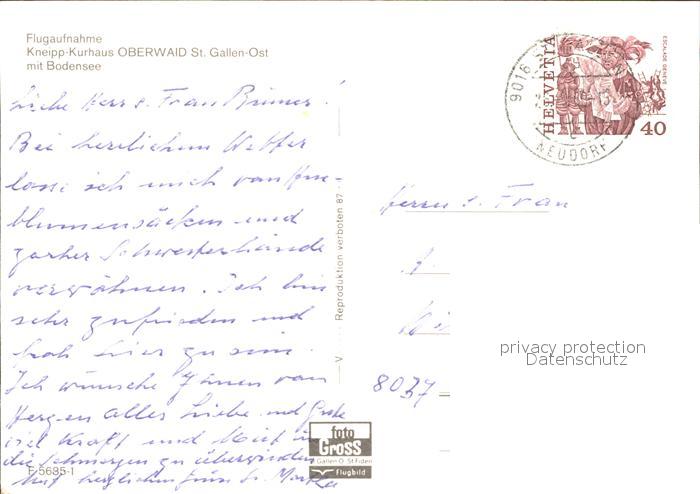 Flugaufnahme
Kneipp-Kurhaus OBERWAID St. Gallen-Ost
mit Bodensee
Liebe Herr u. Frau !
Bei herrlichem Wetter
lass ich mich von Heu-
blumensäcken und
zarter Schwesterhände
verwöhnen. Ich bin
sehr zufrieden und
froh hier zu sein.
Ich wünsche Ihnen von
Herzen alles Liebe und Gute
viel Kraft und
die Schmerzen zu überwinden
Mit herzlichem
F-5685-1
V — Reproduktion verboten 87 -
foto
Gross
Gallen O. St Fiden
Flugbild
HELVETIA
ESCALADE GENÈVE
40
9016
NEUDORF
Herrn u. Frau
8037
privacy protection
Datenschutz